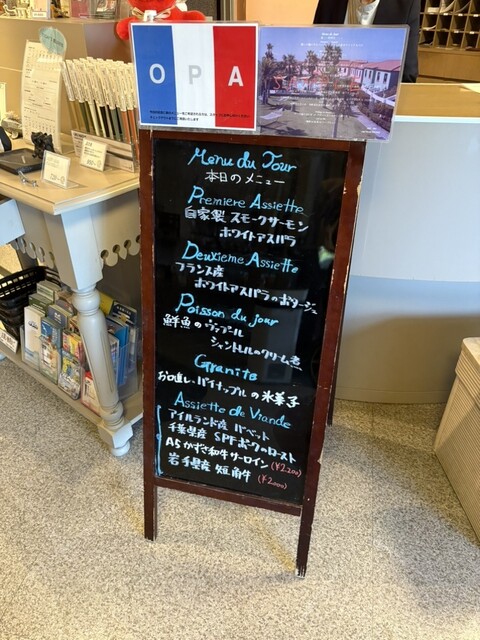 OPA
Menu du Jour
本日のメニュー
Premiere Assiette
自家製 スモークサーモン
ホワイトアスパラ
Deuxieme Assiette
フランス産
ホワイトアスパラのポタージュ
Poisson du jour
鮮魚の ヴァプール
シャントレルのクリーム煮
Granite
お口直し、パイナップルの氷菓子
Assiette de Viande
アイルランド産 バベット
千葉県産 SPFポークのロースト
A5かずさ和牛サーロイン (¥2,200)
岩手県産 短角牛 (¥2,000)